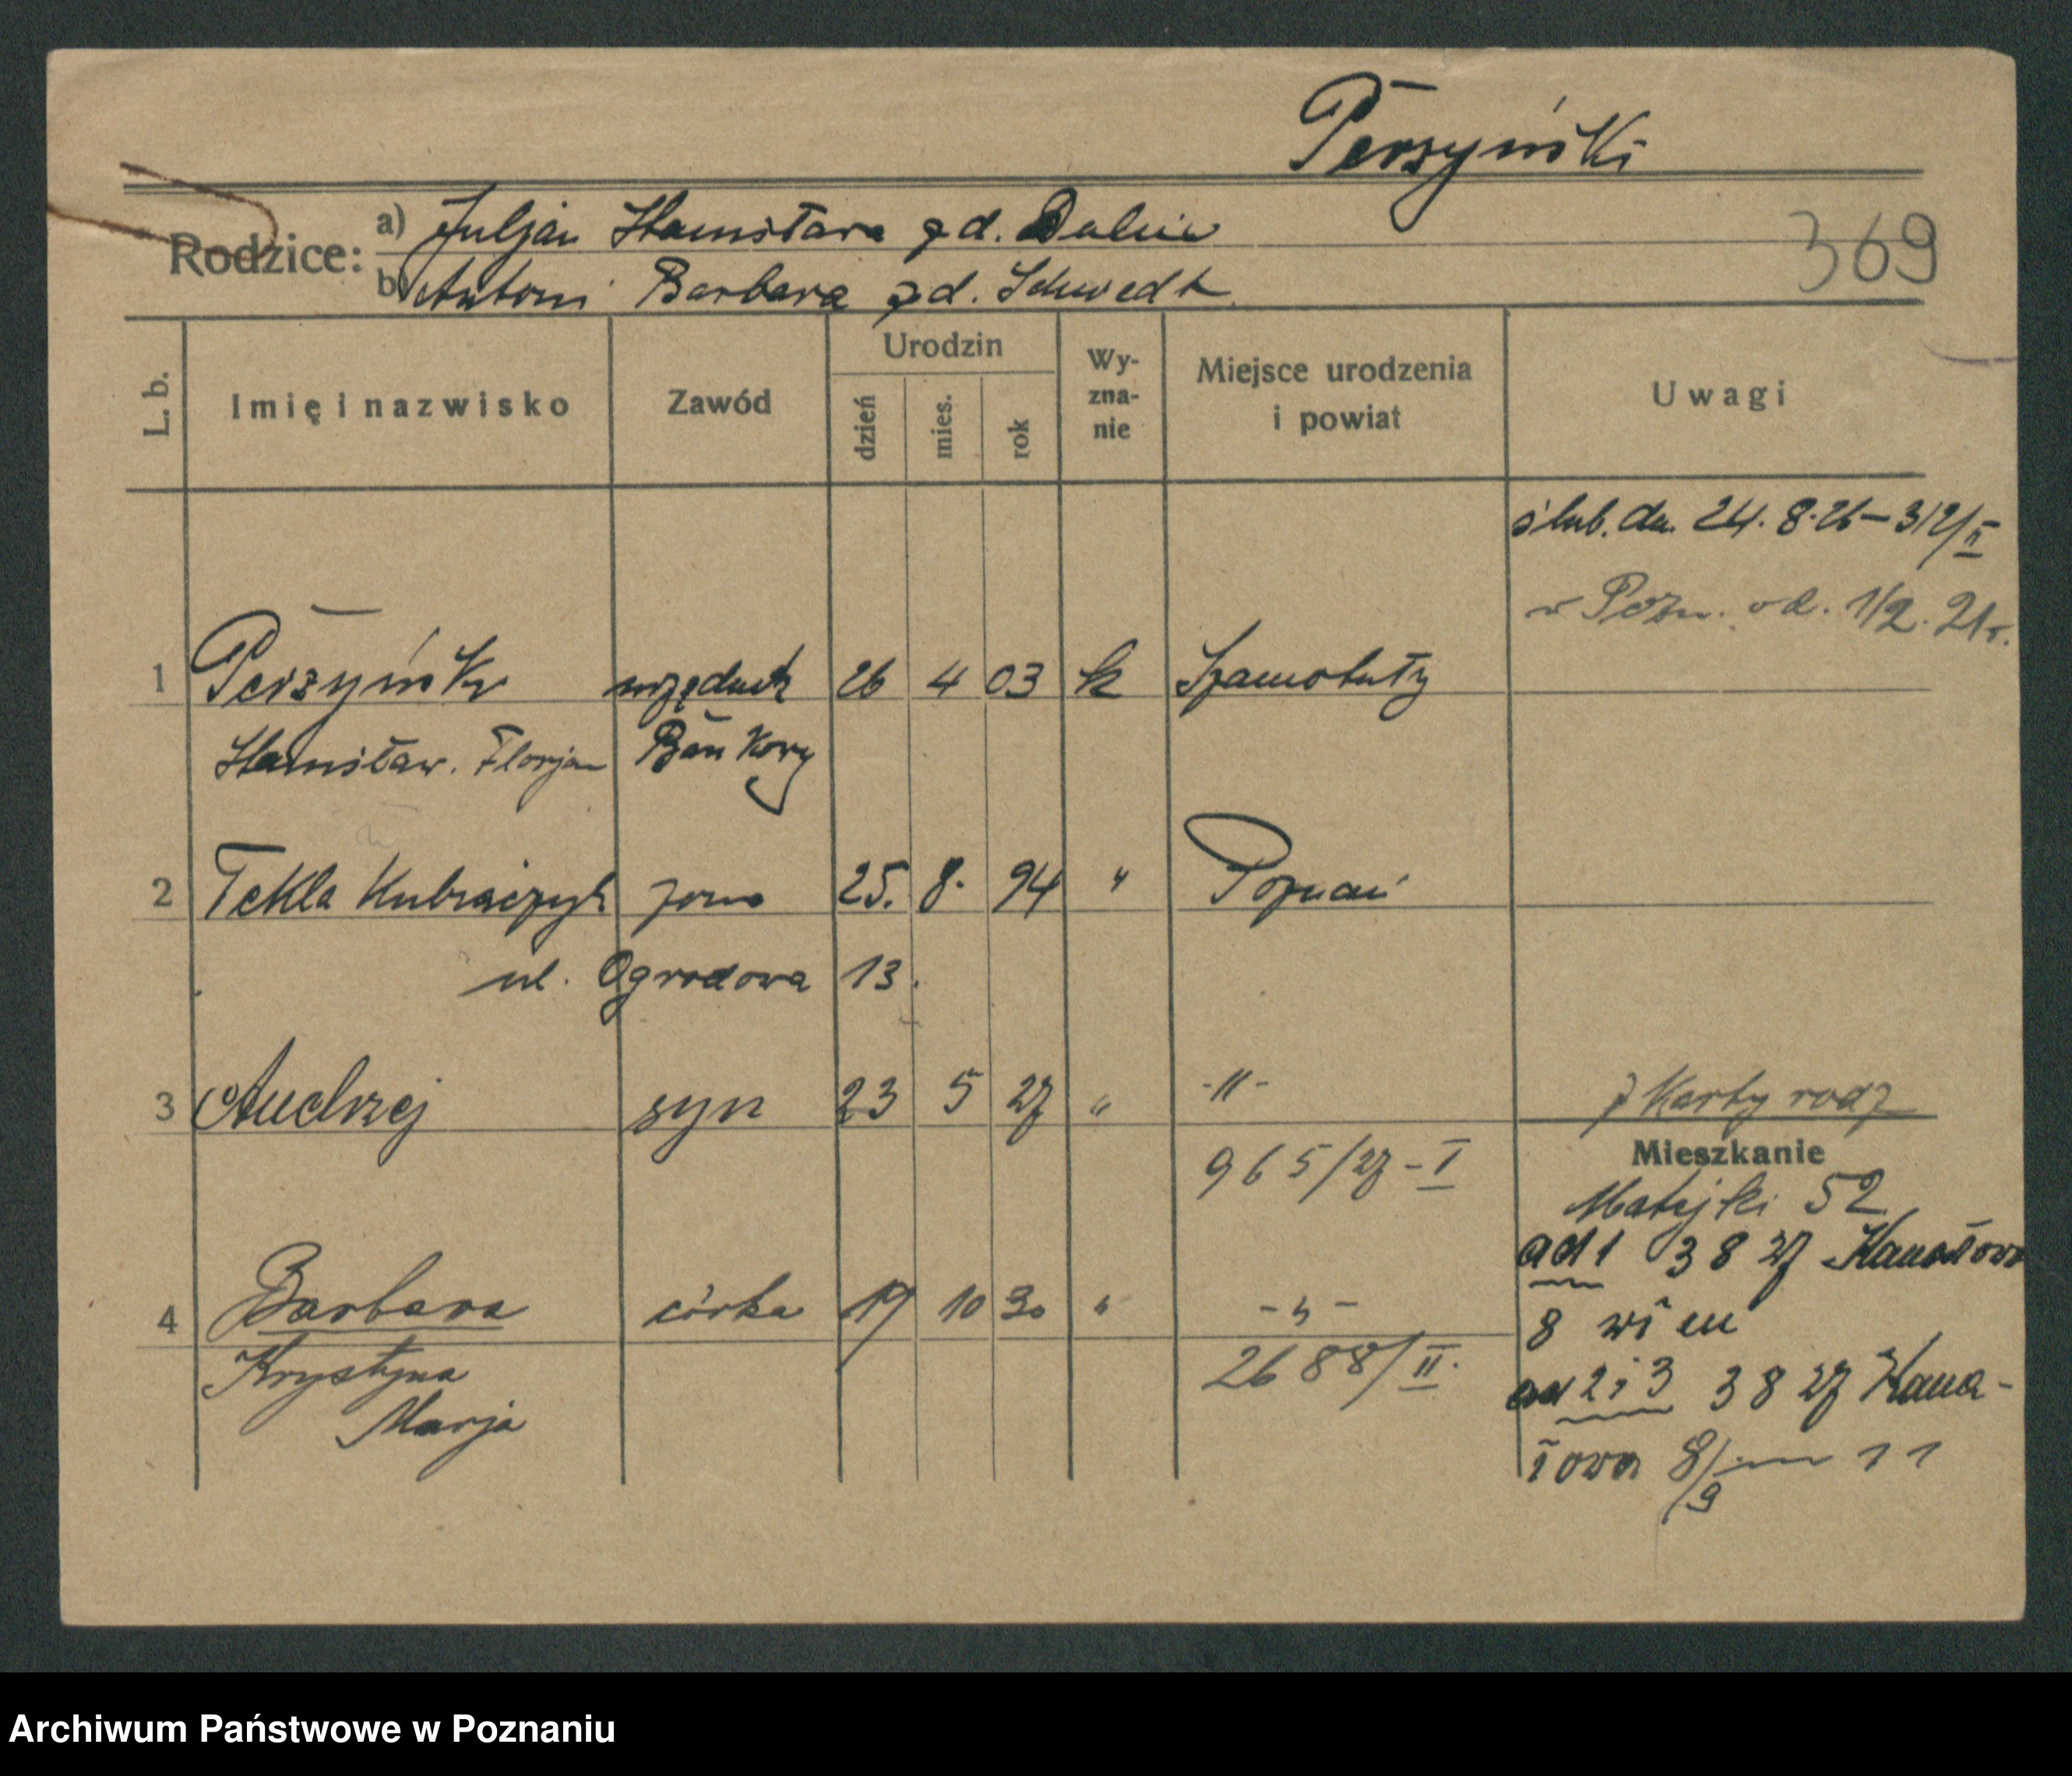 Perzyński
369
Rodzice: a) Juljan Stanisława z d. Dalin
b) Antoni Barbara z d. Schwedt
L. b. Imię i nazwisko Zawód Urodzin dzień mies. rok Wy-zna-nie Miejsce urodzenia i powiat Uwagi
ślub. dn. 24. 8. 26 – 312/II
w Pozn. od. 1/2. 21 r.
1 Perzyński urzędnik 26 4 03 k Szamotuły
Stanisław. Florjan Bankowy
2 Tekla Kubraczyk żona 25. 8. 94 " Poznań
ul. Ogrodowa 13.
3 Andrzej syn 23 5 27 " -"-
z Karty rodz
965/27 – I
Mieszkanie
Matejki 52
ad 1 3 8 27 Kanałowa
8
4 Barbara córka 19 10 30 " -"-
Krystyna
2688/II.
ad 2 i 3 3 8 27 Kana-
Marja
łowa 8/9 m 11
Archiwum Państwowe w Poznaniu